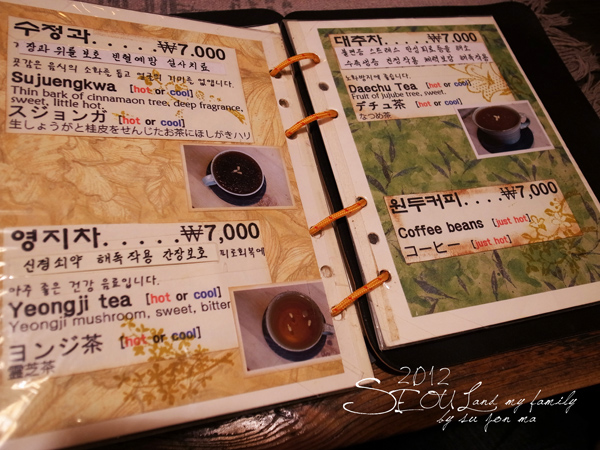 수정과.....₩7,000
장과 위를 보호 변현예방 설사치료
곶감은 음식의 소화를 돕고 얼굴의 기미는 없앱니다.
Sujuengkwa [hot or cool]
Thin bark of cinnamaon tree, deep fragrance,
sweet, little hot.
スジョンガ [hot or cool]
生しょうがと桂皮をせんじたお茶にほしがきハリ
영지차.....₩7,000
신경쇠약 해독작용 간장보호 피로회복에
아주 좋은 건강 음료입니다.
Yeongji tea [hot or cool]
Yeongji mushroom, sweet, bitter
ヨンジ茶 [hot or cool]
霊芝茶
대추차.....₩7,000
불면증 스트레스 만성피로 등을 해소
수족냉증 진정작용 체력보강 해독작용
노화방지에 좋습니다.
Daechu Tea [hot or cool]
Fruit of jujube tree, sweet.
デチュ茶 [hot or cool]
なつめ茶
원두커피.....₩7,000
Coffee beans [just hot]
コーヒー [just hot]
2012
SEOUL and my family
by su jon ma